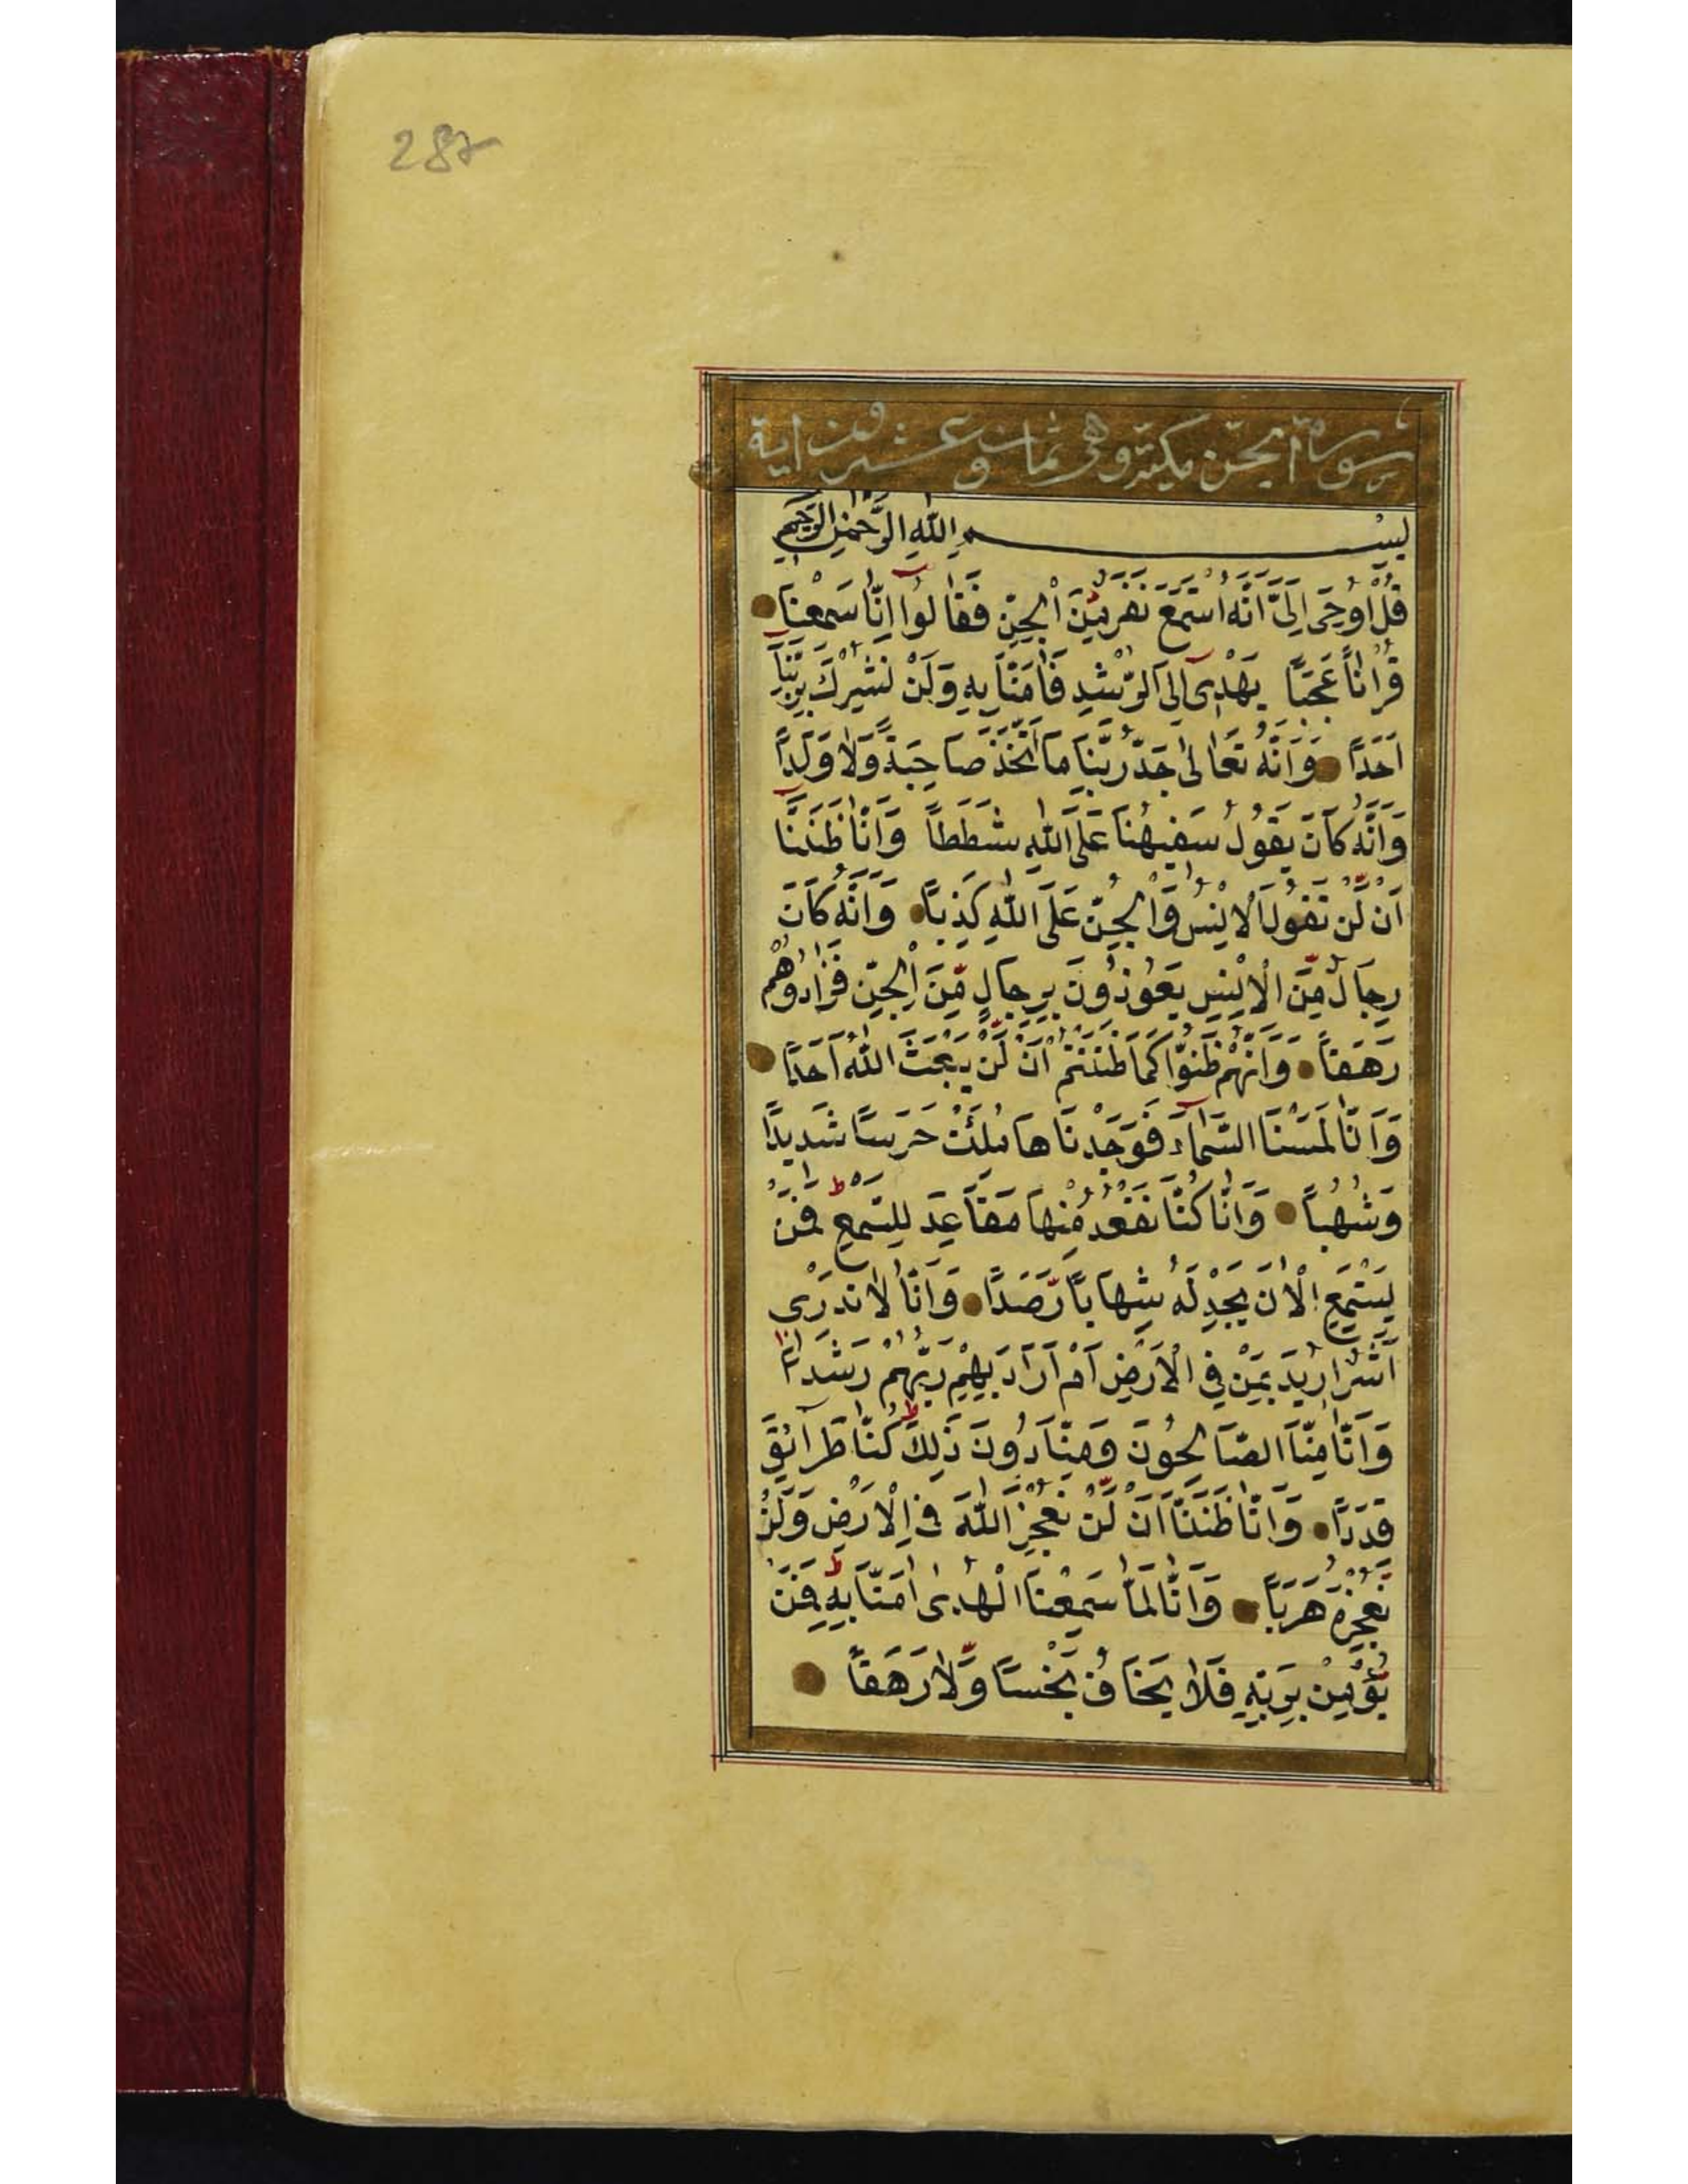 287
سورة الجن مكية وهى ثمان وعشرون اية
بِسْمِ اللّٰهِ الرَّحْمٰنِ الرَّحِيمِ
قُلْ اُوحِىَ اِلَىَّ اَنَّهُ اسْتَمَعَ نَفَرٌ مِّنَ الْجِنِّ فَقَالُوا اِنَّا سَمِعْنَا
قُرْاٰنًا عَجَبًا يَهْدِى اِلَى الرُّشْدِ فَاٰمَنَّا بِهِ وَلَنْ نُشْرِكَ بِرَبِّنَا
اَحَدًا وَاَنَّهُ تَعَالٰى جَدُّ رَبِّنَا مَا اتَّخَذَ صَاحِبَةً وَلَا وَلَدًا
وَاَنَّهُ كَانَ يَقُولُ سَفِيهُنَا عَلَى اللّٰهِ شَطَطًا وَاَنَّا ظَنَنَّا
اَنْ لَّنْ تَقُولَ الْاِنْسُ وَالْجِنُّ عَلَى اللّٰهِ كَذِبًا وَاَنَّهُ كَانَ
رِجَالٌ مِّنَ الْاِنْسِ يَعُوذُونَ بِرِجَالٍ مِّنَ الْجِنِّ فَزَادُوهُمْ
رَهَقًا وَاَنَّهُمْ ظَنُّوا كَمَا ظَنَنْتُمْ اَنْ لَّنْ يَبْعَثَ اللّٰهُ اَحَدًا
وَاَنَّا لَمَسْنَا السَّمَاءَ فَوَجَدْنَاهَا مُلِئَتْ حَرَسًا شَدِيدًا
وَشُهُبًا وَاَنَّا كُنَّا نَقْعُدُ مِنْهَا مَقَاعِدَ لِلسَّمْعِ ط فَمَنْ
يَسْتَمِعِ الْاٰنَ يَجِدْ لَهُ شِهَابًا رَّصَدًا وَاَنَّا لَا نَدْرِى
اَشَرٌّ اُرِيدَ بِمَنْ فِى الْاَرْضِ اَمْ اَرَادَ بِهِمْ رَبُّهُمْ رَشَدًا
وَاَنَّا مِنَّا الصَّالِحُونَ وَمِنَّا دُونَ ذٰلِكَ ط كُنَّا طَرَائِقَ
قِدَدًا وَاَنَّا ظَنَنَّا اَنْ لَّنْ نُعْجِزَ اللّٰهَ فِى الْاَرْضِ وَلَنْ
نُعْجِزَهُ هَرَبًا وَاَنَّا لَمَّا سَمِعْنَا الْهُدٰى اٰمَنَّا بِهِ ط فَمَنْ
يُؤْمِنْ بِرَبِّهِ فَلَا يَخَافُ بَخْسًا وَّلَا رَهَقًا